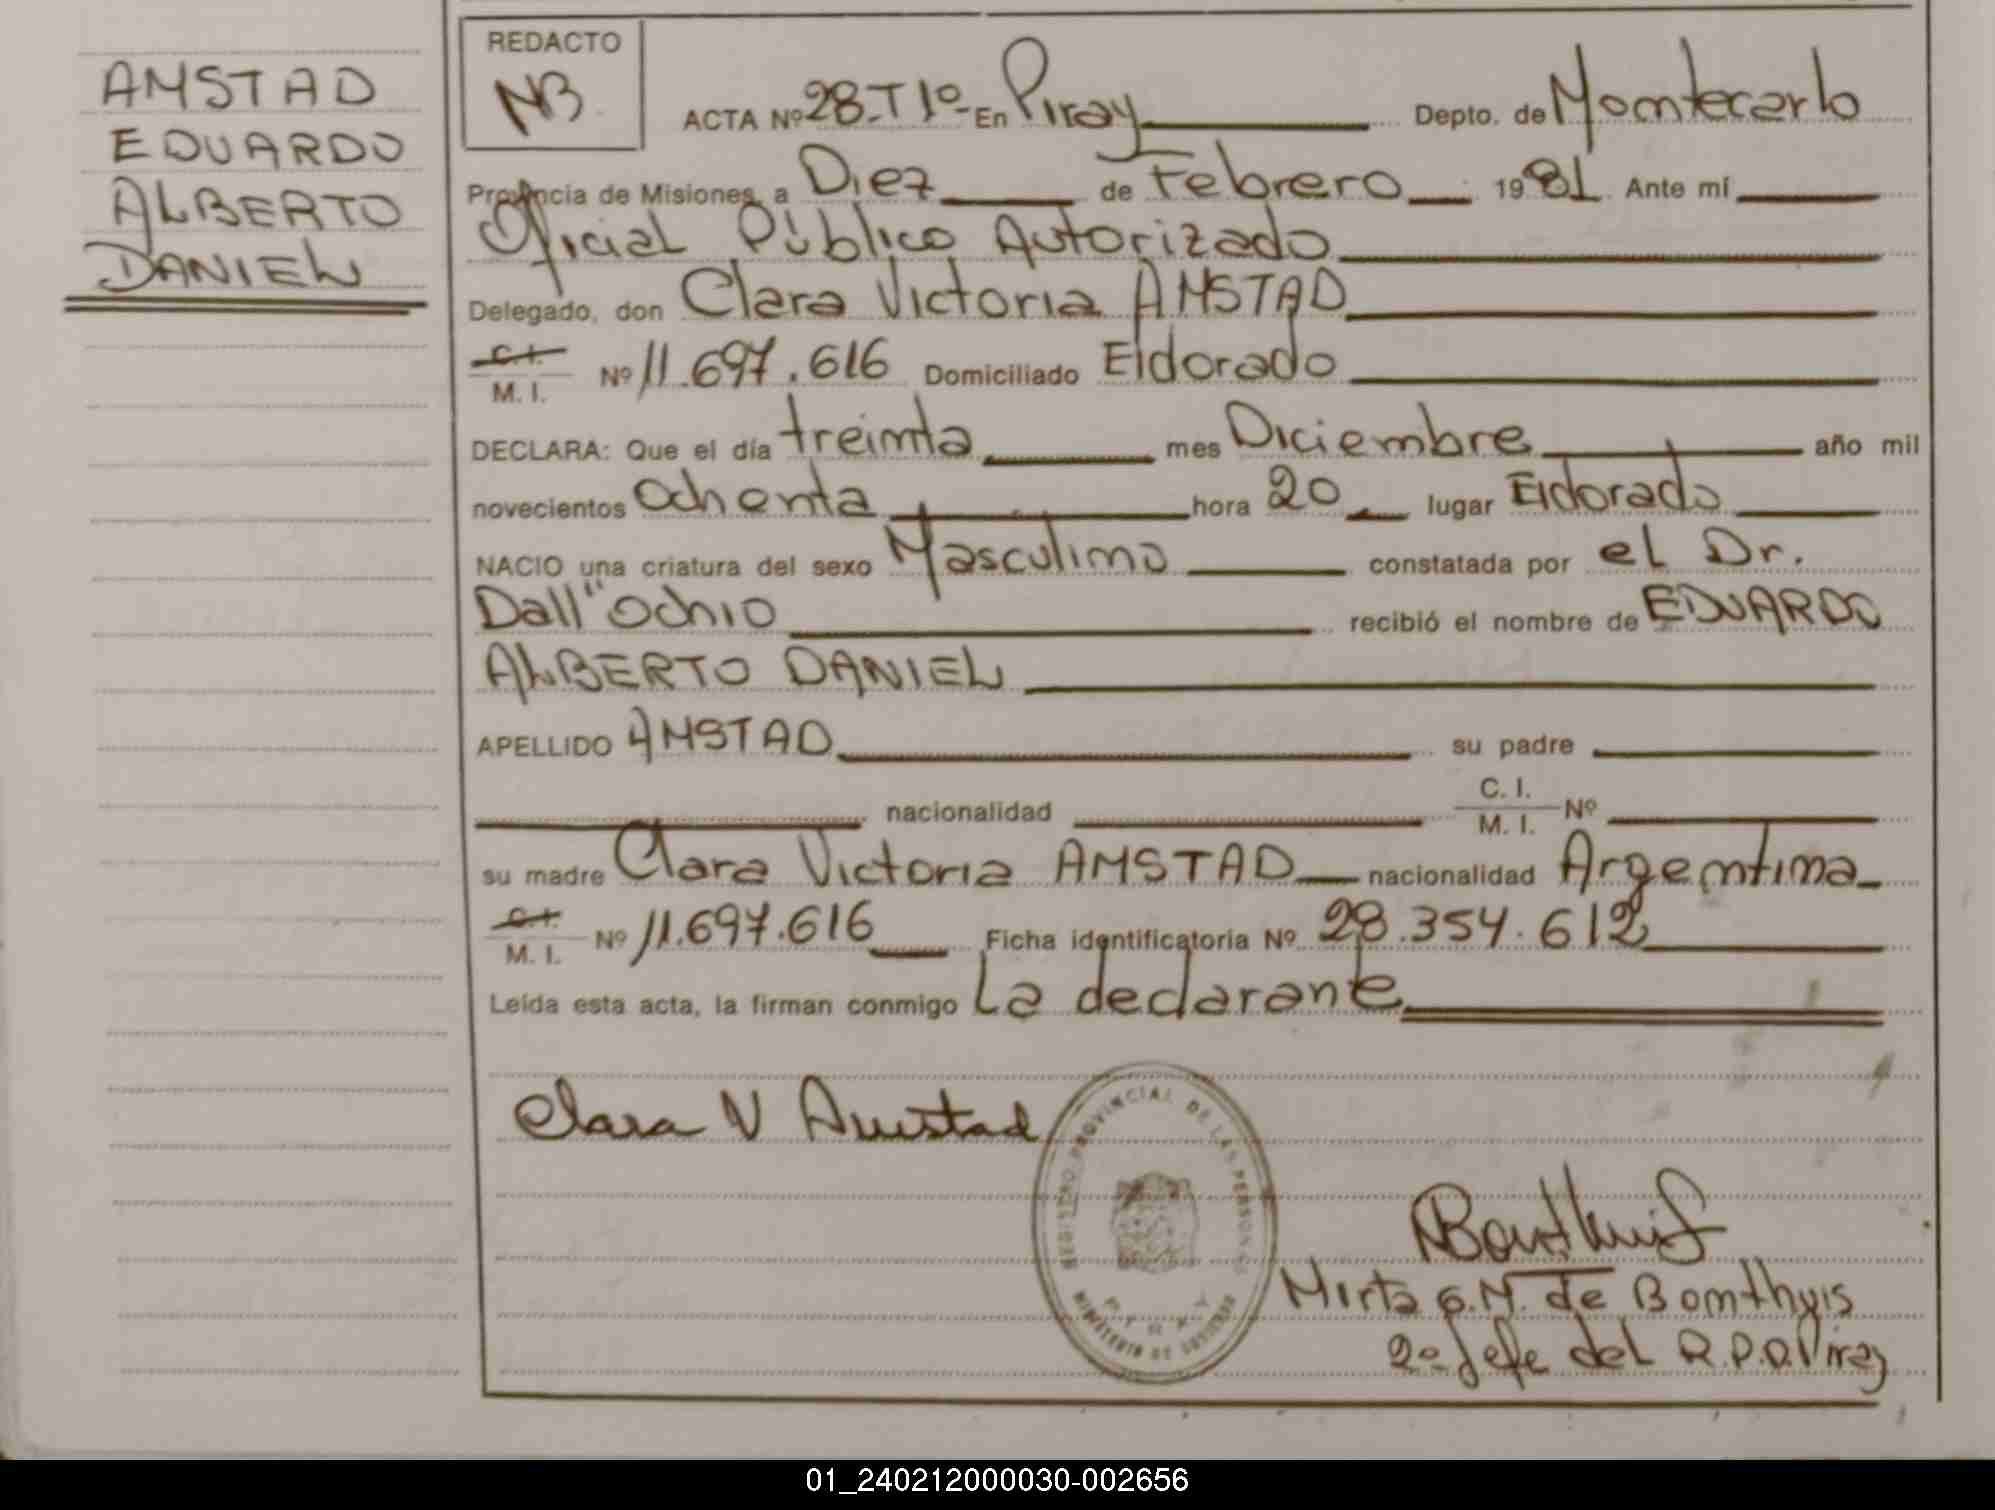 AMSTAD
EDUARDO
ALBERTO
DANIEL
REDACTO
NB
ACTA Nº 28-T1º- En Piray Depto. de Montecarlo
Provincia de Misiones, a Diez de Febrero 1981 Ante mí
Oficial Público Autorizado
Delegado, don Clara Victoria AMSTAD
C. I.
M. I. Nº 11.697.616 Domiciliado Eldorado
DECLARA: Que el día treinta mes Diciembre año mil
novecientos ochenta hora 20 lugar Eldorado
NACIO una criatura del sexo Masculino constatada por el Dr.
Dall"Ochio recibió el nombre de EDUARDO
ALBERTO DANIEL
APELLIDO AMSTAD su padre
nacionalidad C. I. Nº
M. I.
su madre Clara Victoria AMSTAD nacionalidad Argentina
C. I.
M. I. Nº 11.697.616 Ficha identificatoria Nº 28.354.612
Leída esta acta, la firman conmigo La declarante
Clara V Amstad
REGISTRO PROVINCIAL DE LAS PERSONAS
PIRAY
MINISTERIO DE GOBIERNO
Mirta G.M. de Bonthuis
2º Jefe del R.P.P. Piray
01_240212000030-002656